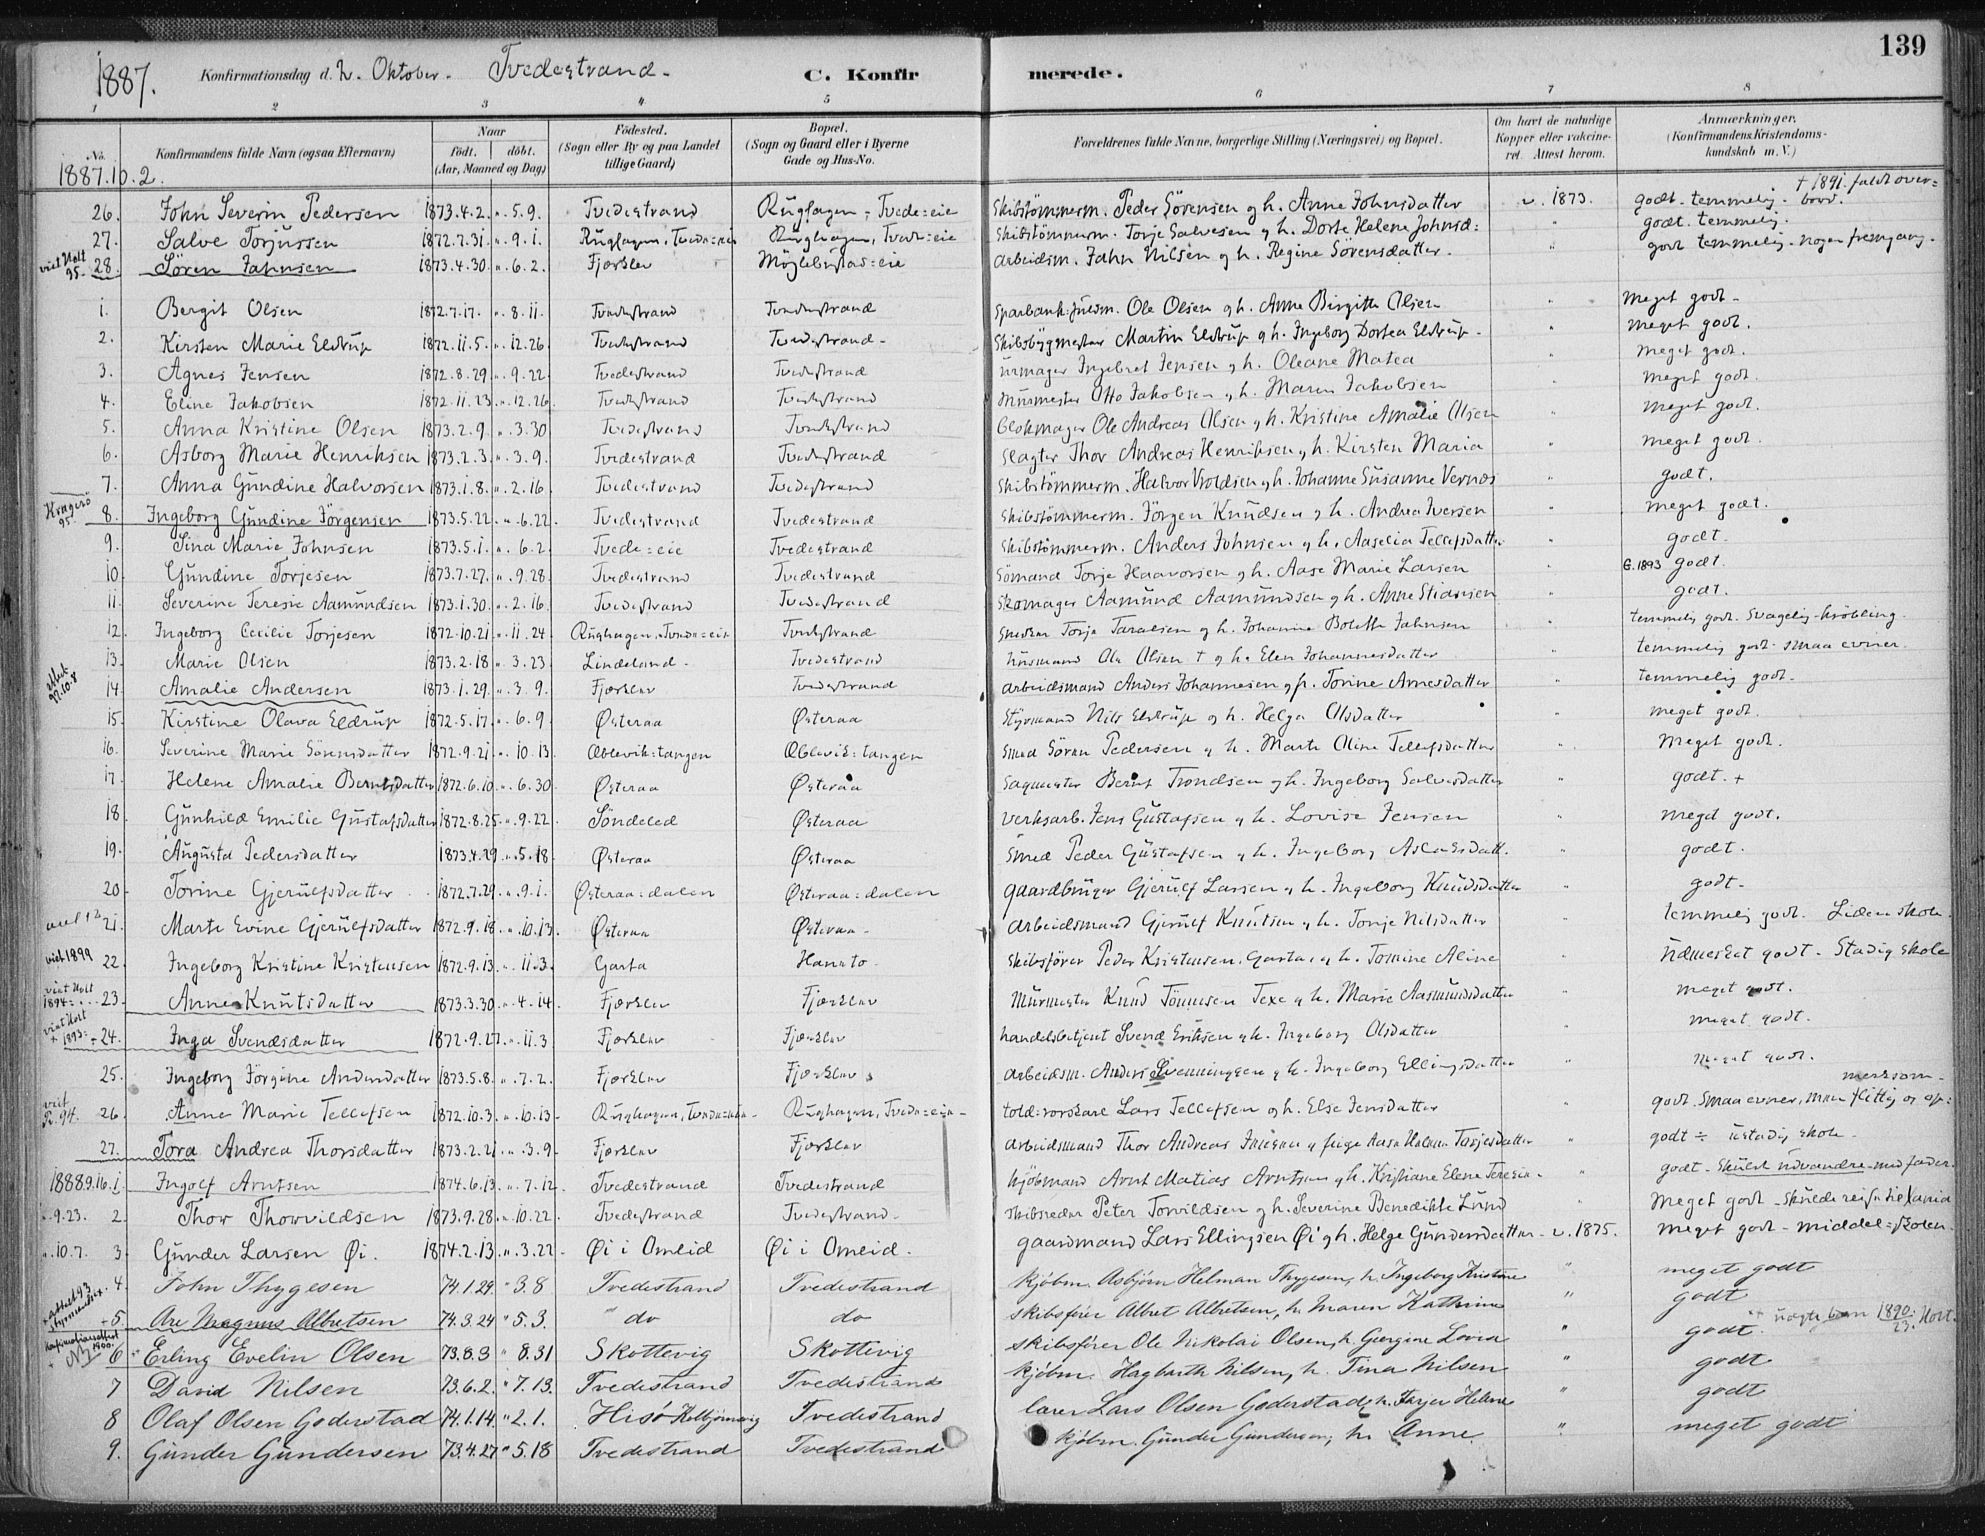 139
1887. Konfirmationsdag d. 2. Oktober. Tvedestrand. C. Konfirmerede.
1 2 3 4 5 6 7 8
No. Konfirmandens fulde Navn (ogsaa Efternavn) Naar født. døbt. (Aar, Maaned og Dag) Fødested. (Sogn eller By og paa Landet tillige Gaard) Bopæl. (Sogn og Gaard eller i Byerne Gade og Hus-No. Forældrenes fulde Navne, borgerlige Stilling (Næringsvei) og Bopæl. Om havt de naturlige Kopper eller vakcineret. Attest herom. Anmærkninger. (Konfirmandens Kristendomskundskab m. V.)
1887.10.2.
26. John Severin Pedersen 1873.4.2. „ 5.9. Tvedestrand Tvede=eie Skibstömmerm. Peder Sørensen og h. Anne Johnsdatter v. 1873. godt - temmelig - † 1891. faldt overbord.
27. Salve Torjussen 1872.7.31. „ 9.1. Tvede=eie Tvede=eie Skibstömmerm. Torje Salvesen og h. Dorte Helene Johnsd: " godt. temmelig.
28. Sören Jahnsen 1873.4.30. „ 6.2. Fjærkler eie Arbeidsm. Jahn Nilsen og h. Regine Sörensdatter. " godt temmelig - nogen fremgang.
1. Bergit Olsen 1872.7.17. „ 8.11. Tvedestrand Tvedestrand Ole Olsen og h. Anne Birgitte Olsen " Meget godt -
2. Kirsten Marie Eldrup 1872.11.5. „ 12.26. Tvedestrand Tvedestrand - Skibsbygmester Martin Eldrup og h. Ingeborg Dortea Eldrup. " meget godt.
3. Agnes Jensen 1872.8.29. „ 9.22. Tvedestrand Tvedestrand urmager Ingebret Jensen og h. Oleane Matea " meget godt.
4. Eline Jakobsen 1872.11.23. „ 12.26. Tvedestrand Tvedestrand Murmester Otto Jakobsen og h. Maren Jakobsen " meget godt.
5. Anna Kristine Olsen 1873.2.9. „ 3.30 Tvedestrand Tvedestrand Blokmager Ole Andreas Olsen og h. Kristine Amalie Olsen " meget godt.
6. Asborg Marie Henriksen 1873.2.3. „ 3.9. Tvedestrand Tvedestrand Slagter Thor Andreas Henriksen og h. Kirsten Maria " meget godt.
7. Anna Gundine Halvorsen 1873.1.8. „ 2.16. Tvedestrand Tvedestrand Skibstömmerm. Halvor Vroldsen og h. Johanne Susanne " godt.
Kragerö 95. 8. Ingeborg Gundine Jörgensen 1873.5.22. „ 6.22. Tvedestrand Tvedestrand Skibstömmerm. Jörgen Knudsen og h. Andrea Iversen " meget godt.
9. Sina Marie Johnsen 1873.5.1. „ 6.2. Tvede=eie Tvedestrand Skibstömmerm. Anders Johnsen og h. Aaselia Tellefsdatter " godt.
10. Gundine Torjesen 1873.7.27. „ 9.28. Tvedestrand Tvedestrand Sömand Torje Haavorsen og h. Aase Marie Larsen " G. 1893 godt.
11. Severine Teresie Aamundsen 1873.1.30. „ 2.16. Tvedestrand Tvedestrand Skomager Aamund Aamundsen og h. Anne Stiansen " godt.
12. Ingeborg Cecilie Torjesen 1872.10.21. „ 11.24. Tvede=eie Tvedestrand Torje og h. Johanne Bolette Jahnsen " temmelig godt. Svagelig - kröbling.
13. Marie Olsen 1873.2.18 „ 3.23. Lindeland. Tvedestrand husmand Ole Olsen † og h. Elen Johannesdatter " temmelig godt - smaa evner.
14. Amalie Andersen 1873.1.29. „ 3.9. Fjærkler Tvedestrand arbeidsmand Anders Johannesen og h. Torine Arnesdatter " temmelig godt.
15. Kirstine Olava Eldrup 1872.5.17. „ 6.9. Østeraa Østeraa Styrmand Nils Eldrup og h. Helga Olsdatter " meget godt.
16. Severine Marie Sörensdatter 1872.9.21. „ 10.13. tangen tangen Smed Sören Pedersen og h. Marte Oline Tellefsdatter " Meget godt.
17. Helene Amalie Berntsdatter 1872.6.10. „ 6.30. Østeraa Østeraa Sagmester Bernt Trondsen og h. Ingeborg Salvesdatter " godt. +
18. Gunhild Emilie Gustafsdatter 1872.8.25. „ 9.22. Söndeled Østeraa Verksarb. Jens Gustafsen og h. Lovise Jensen " meget godt.
19. Augusta Pedersdatter 1873.4.29 „ 5.18. Østeraa Østeraa Smed Peder Gustafsen og h. Ingeborg Aslaksdatt. " godt.
20. Torine Gjerulfsdatter 1872.7.29. „ 9.1. Østeraa=dalen Østeraa=dalen gaardbruger Gjerulf Larsen og h. Ingeborg Knudsdatter " godt.
21. Marte Evine Gjerulfsdatter 1872.9.18. „ 10.13. Østeraa Østeraa - Arbeidsmand Gjerulf Knutsen og h. Torje Nilsdatter " temmelig godt. Liden skole.
viet 1899 22. Ingeborg Kristine Kristensen 1872.9.13. „ 11.3. Garta Skibsförer Peder Kristensen, Garta og h. Tomine Aline " udmerket godt - Stadig skole
viet Holt 1894 23. Anne Knutsdatter 1873.3.30. „ 4.14. Fjærkler Fjærkler Murmester Knud Tönnesen Texe og h. Marie Aasmundsdatter " meget godt.
viet Holt 1893 24. Inga Svendsdatter 1872.9.27. „ 11.3 Fjærkler Fjærkler handelsbetjent Svend Eriksen og h. Ingeborg Olsdatter " meget godt.
25. Ingeborg Jörgine Andersdatter 1873.5.8. „ 7.2. Fjærkler Fjærkler arbeidsm. Anders Svenningsen og h. Ingeborg Ellingsdatter " meget godt.
viet 94. 26. Anne Marie Tellefsen 1872.10.3. „ 10.13. Tvede=eie Tvede=eie toldrorskarl Lars Tellefsen og h. Else Jensdatter " godt. Smaa evner, men flittig og opmerksom -
27. Tora Andrea Thorsdatter 1873.2.21. „ 3.9. Fjærkler Fjærkler arbeidsmand Thor Andreas og pige Torjesdatter " godt ÷ ustadig skole -
1888.9.16. 1. Ingolf Arntsen 1874.6.13. „ 7.12. Tvedestrand Tvedestrand kjöbmand Arnt Matias Arntsen og h. Kristiane Elene Teresia " godt - skulde udvandre med fader.
„ 9.23. 2. Thorvildsen 1873.9.28. „ 10.22. Tvedestrand Tvedestrand - Skibsreder Peter Torvildsen og h. Severine Benedikte Lund " Meget godt - skulde reise til Xania
„ 10.7. 3. Gunder Larsen Øi. 1874.2.13. „ 3.22. Øi i Omlid Øi i Omlid. gaardmand Lars Ellingsen Øi og h. Helge Gundersdatter v. 1875. meget godt - middel=skolen.
4 John Thygesen 74.1.29. " 3.8 Tvedestrand Tvedestrand Kjöbm. Asbjörn Helman Thygesen, h. Ingeborg Kristine " meget godt
5. Are Magnus Albretsen 74.3.24 " 5.3. " do do skibsförer Albret Albretsen, h. Maren Kathrine " godt
6 Erling Evelin Olsen 73.8.3 " 8.31 Skottevig Skottevig skibsförer Ole Nikolai Olsen, h. Georgine Lovra " godt.
7 David Nilsen 73.6.2. " 7.13. Tvedestrand Tvedestrand kjöbm. Hagbarth Nilsen, h. Tina Nilsen " godt
8 Olaf Olsen Goderstad 74.1.14. " 2.1. Hisö Kolbjörnsvig Tvedestrand lærer Lars Olsen Goderstad, h. Helene " godt
9. Gunder Gundersen 73.4.27 " 5.18 Tvedestrand Tvedestrand kjöbm. Gunder Gundersen, h. Anne " meget godt